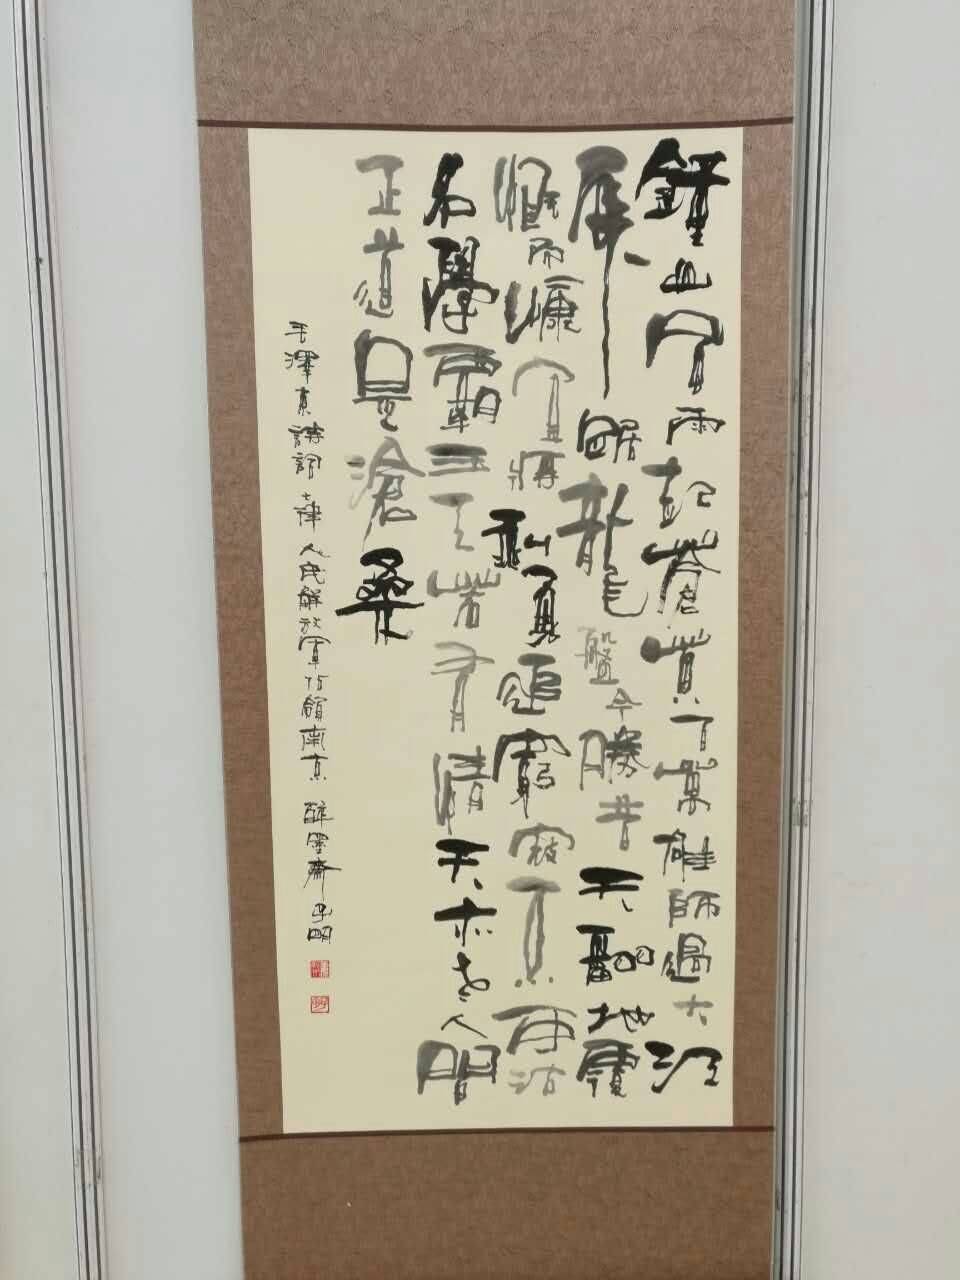 鐘山風雨起蒼黃百萬雄師過大江
虎踞龍盤今勝昔天翻地覆
慨而慷宜將剩勇追窮寇不可沽
名學霸王天若有情天亦老人間
正道是滄桑
毛澤東詩詞七律人民解放軍佔領南京 醉墨齋子明